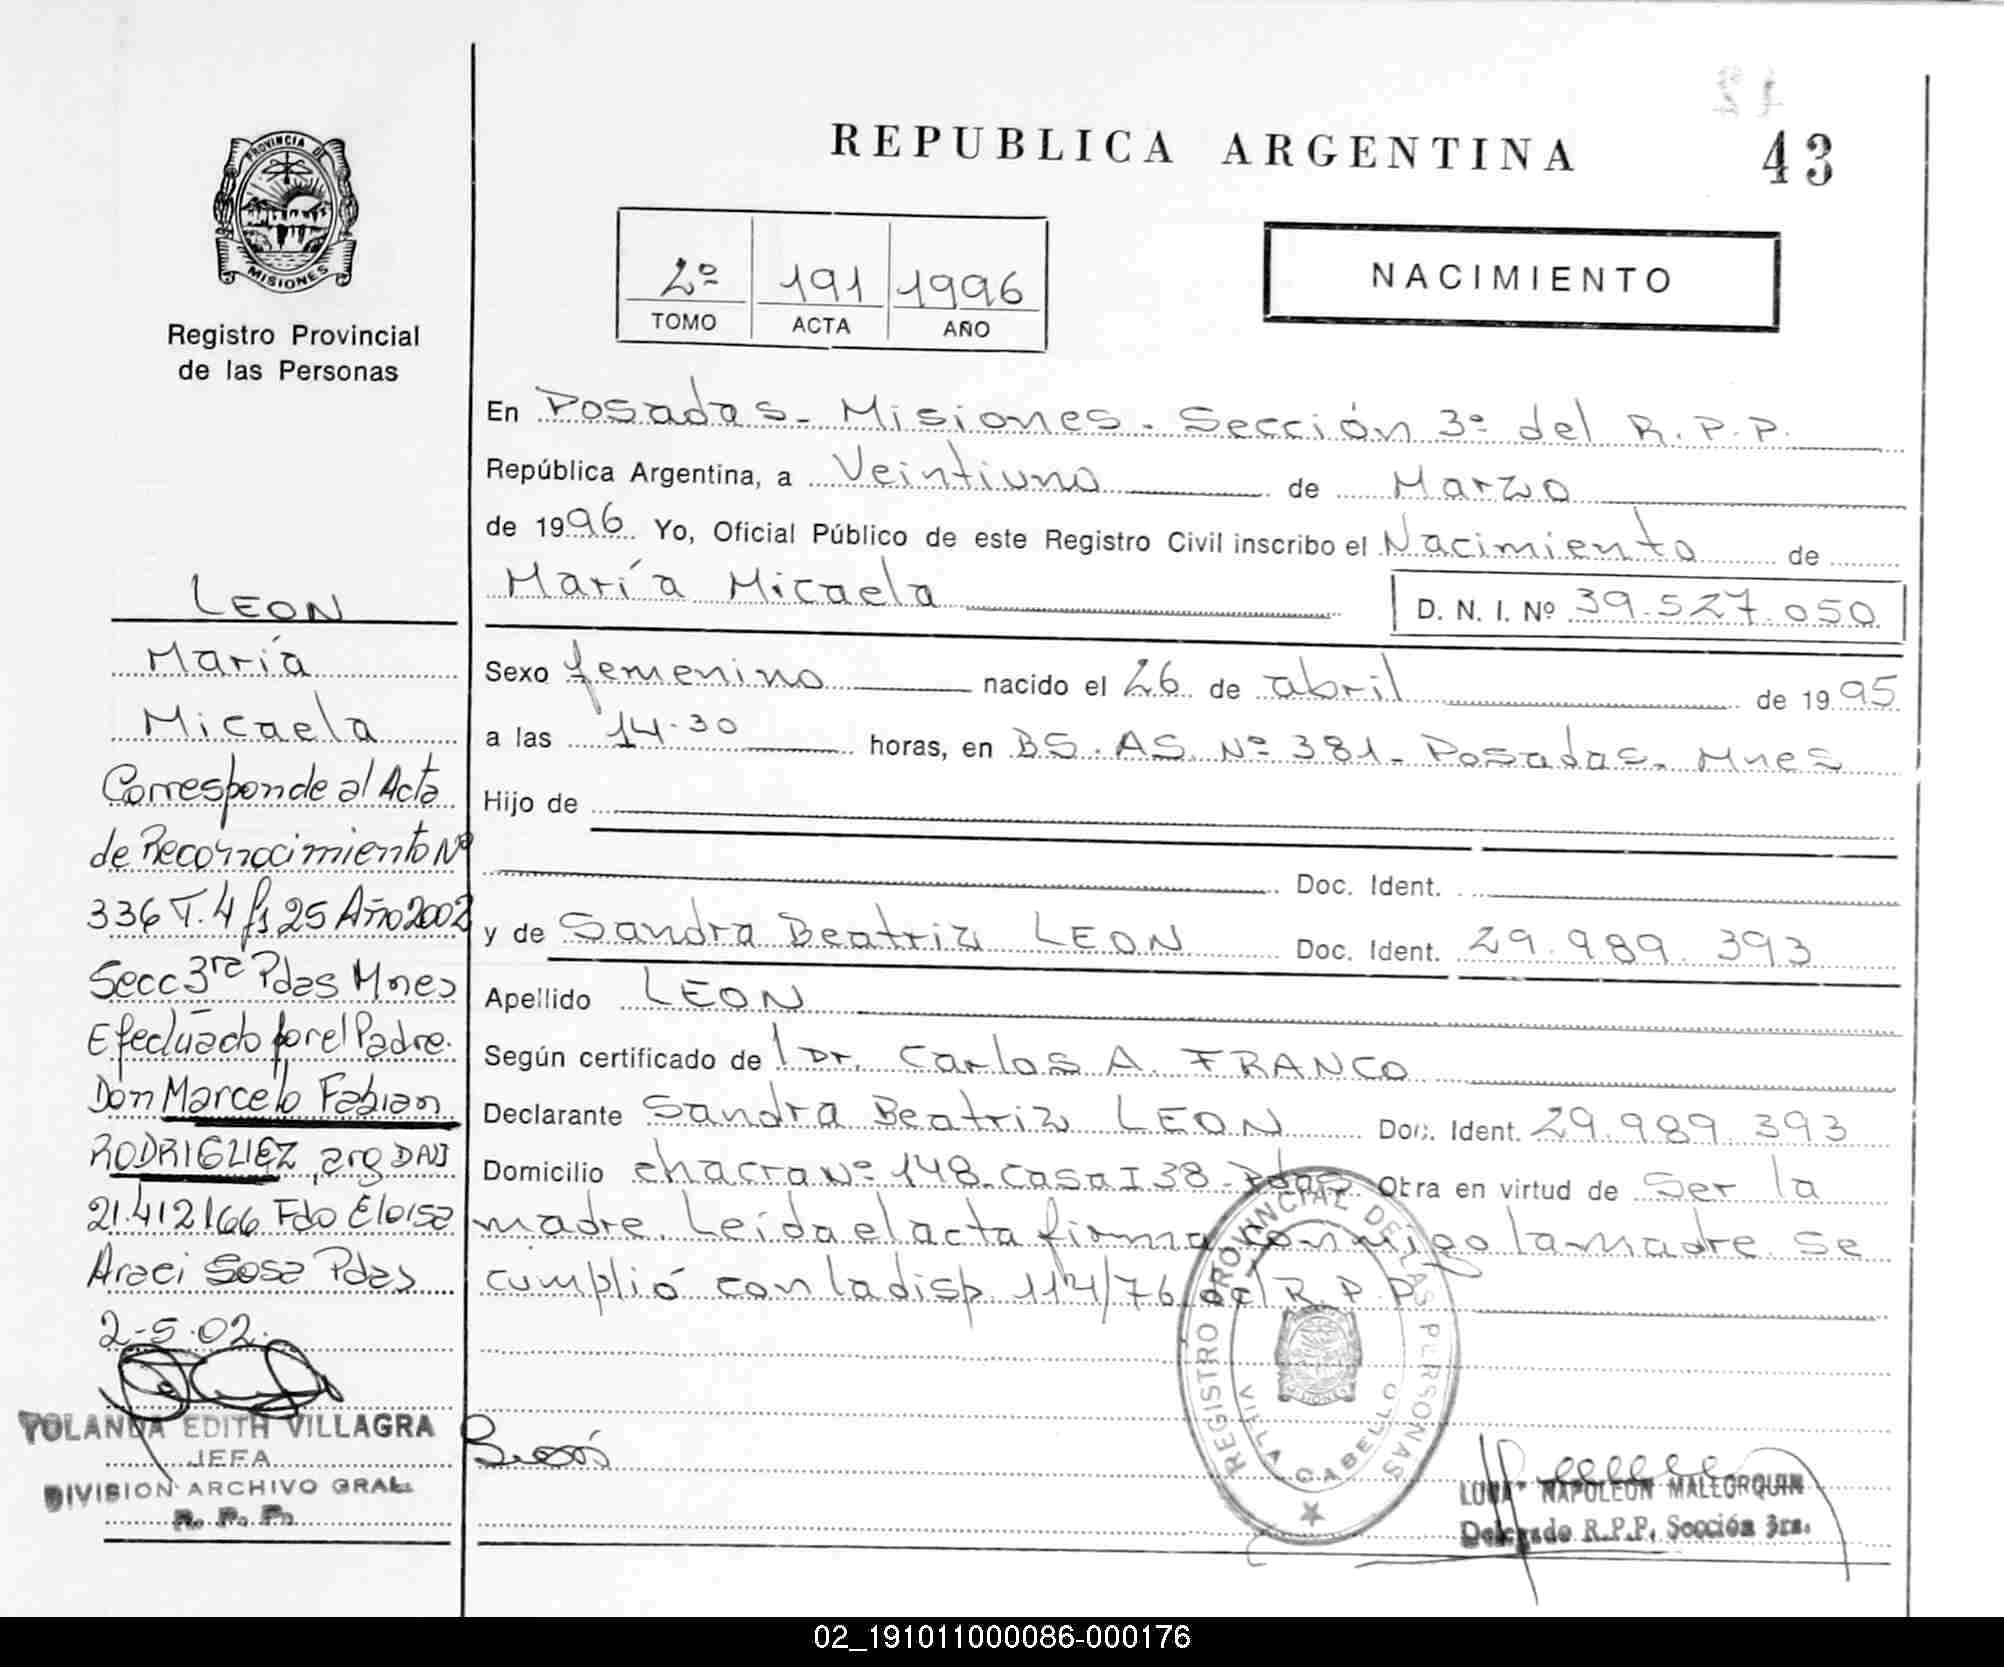 REPUBLICA ARGENTINA
43
PROVINCIA DE
MISIONES
Registro Provincial
de las Personas
2º 191 1996
TOMO ACTA AÑO
NACIMIENTO
En Posadas - Misiones - Sección 3ª del R.P.P.
República Argentina, a Veintiuno de Marzo
de 1996 Yo, Oficial Público de este Registro Civil inscribo el Nacimiento de
María Micaela D. N. I. Nº 39.527.050
Sexo femenino nacido el 26 de abril de 1995
a las 14.30 horas, en BS. AS. Nº 381 - Posadas - Mnes
Hijo de
Doc. Ident.
y de Sandra Beatriz LEON Doc. Ident. 29.989.393
Apellido LEON
Según certificado de l Dr. Carlos A. FRANCO
Declarante Sandra Beatriz LEON Doc. Ident. 29.989.393
Domicilio chacra Nº 148 - casa I 38 - Pdas Obra en virtud de Ser la
madre. Leída el acta firma conmigo la madre se
cumplió con la disp. 114/76 del R.P.P.
LEON
María
Micaela
Corresponde al Acta
de Reconocimiento Nº
336 T. 4 fs 25 Año 2002
Secc 3ra Pdas Mnes
Efectuado por el Padre
Don Marcelo Fabian
RODRIGUEZ, arg DNI
21.412.166 Fdo Eloisa
Araci Sosa Pdas
2-5-02.
YOLANDA EDITH VILLAGRA
JEFA
DIVISION ARCHIVO GRAL.
R. P. P.
REGISTRO PROVINCIAL DE LAS PERSONAS
VILLA CABELLO
NAPOLEON MALLORQUIN
Delegado R.P.P. Sección 3ra.
02_191011000086-000176